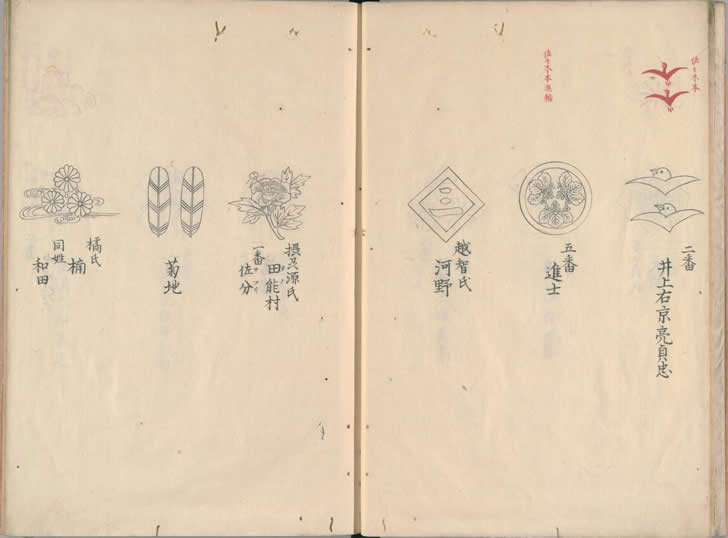 佐々木本
二番
井上右京亮貞忠
佐々木本無輪
五番
進士
越智氏
河野
摂州源氏
田能村
一番
佐分
菊地
橘氏
楠
同姓
和田